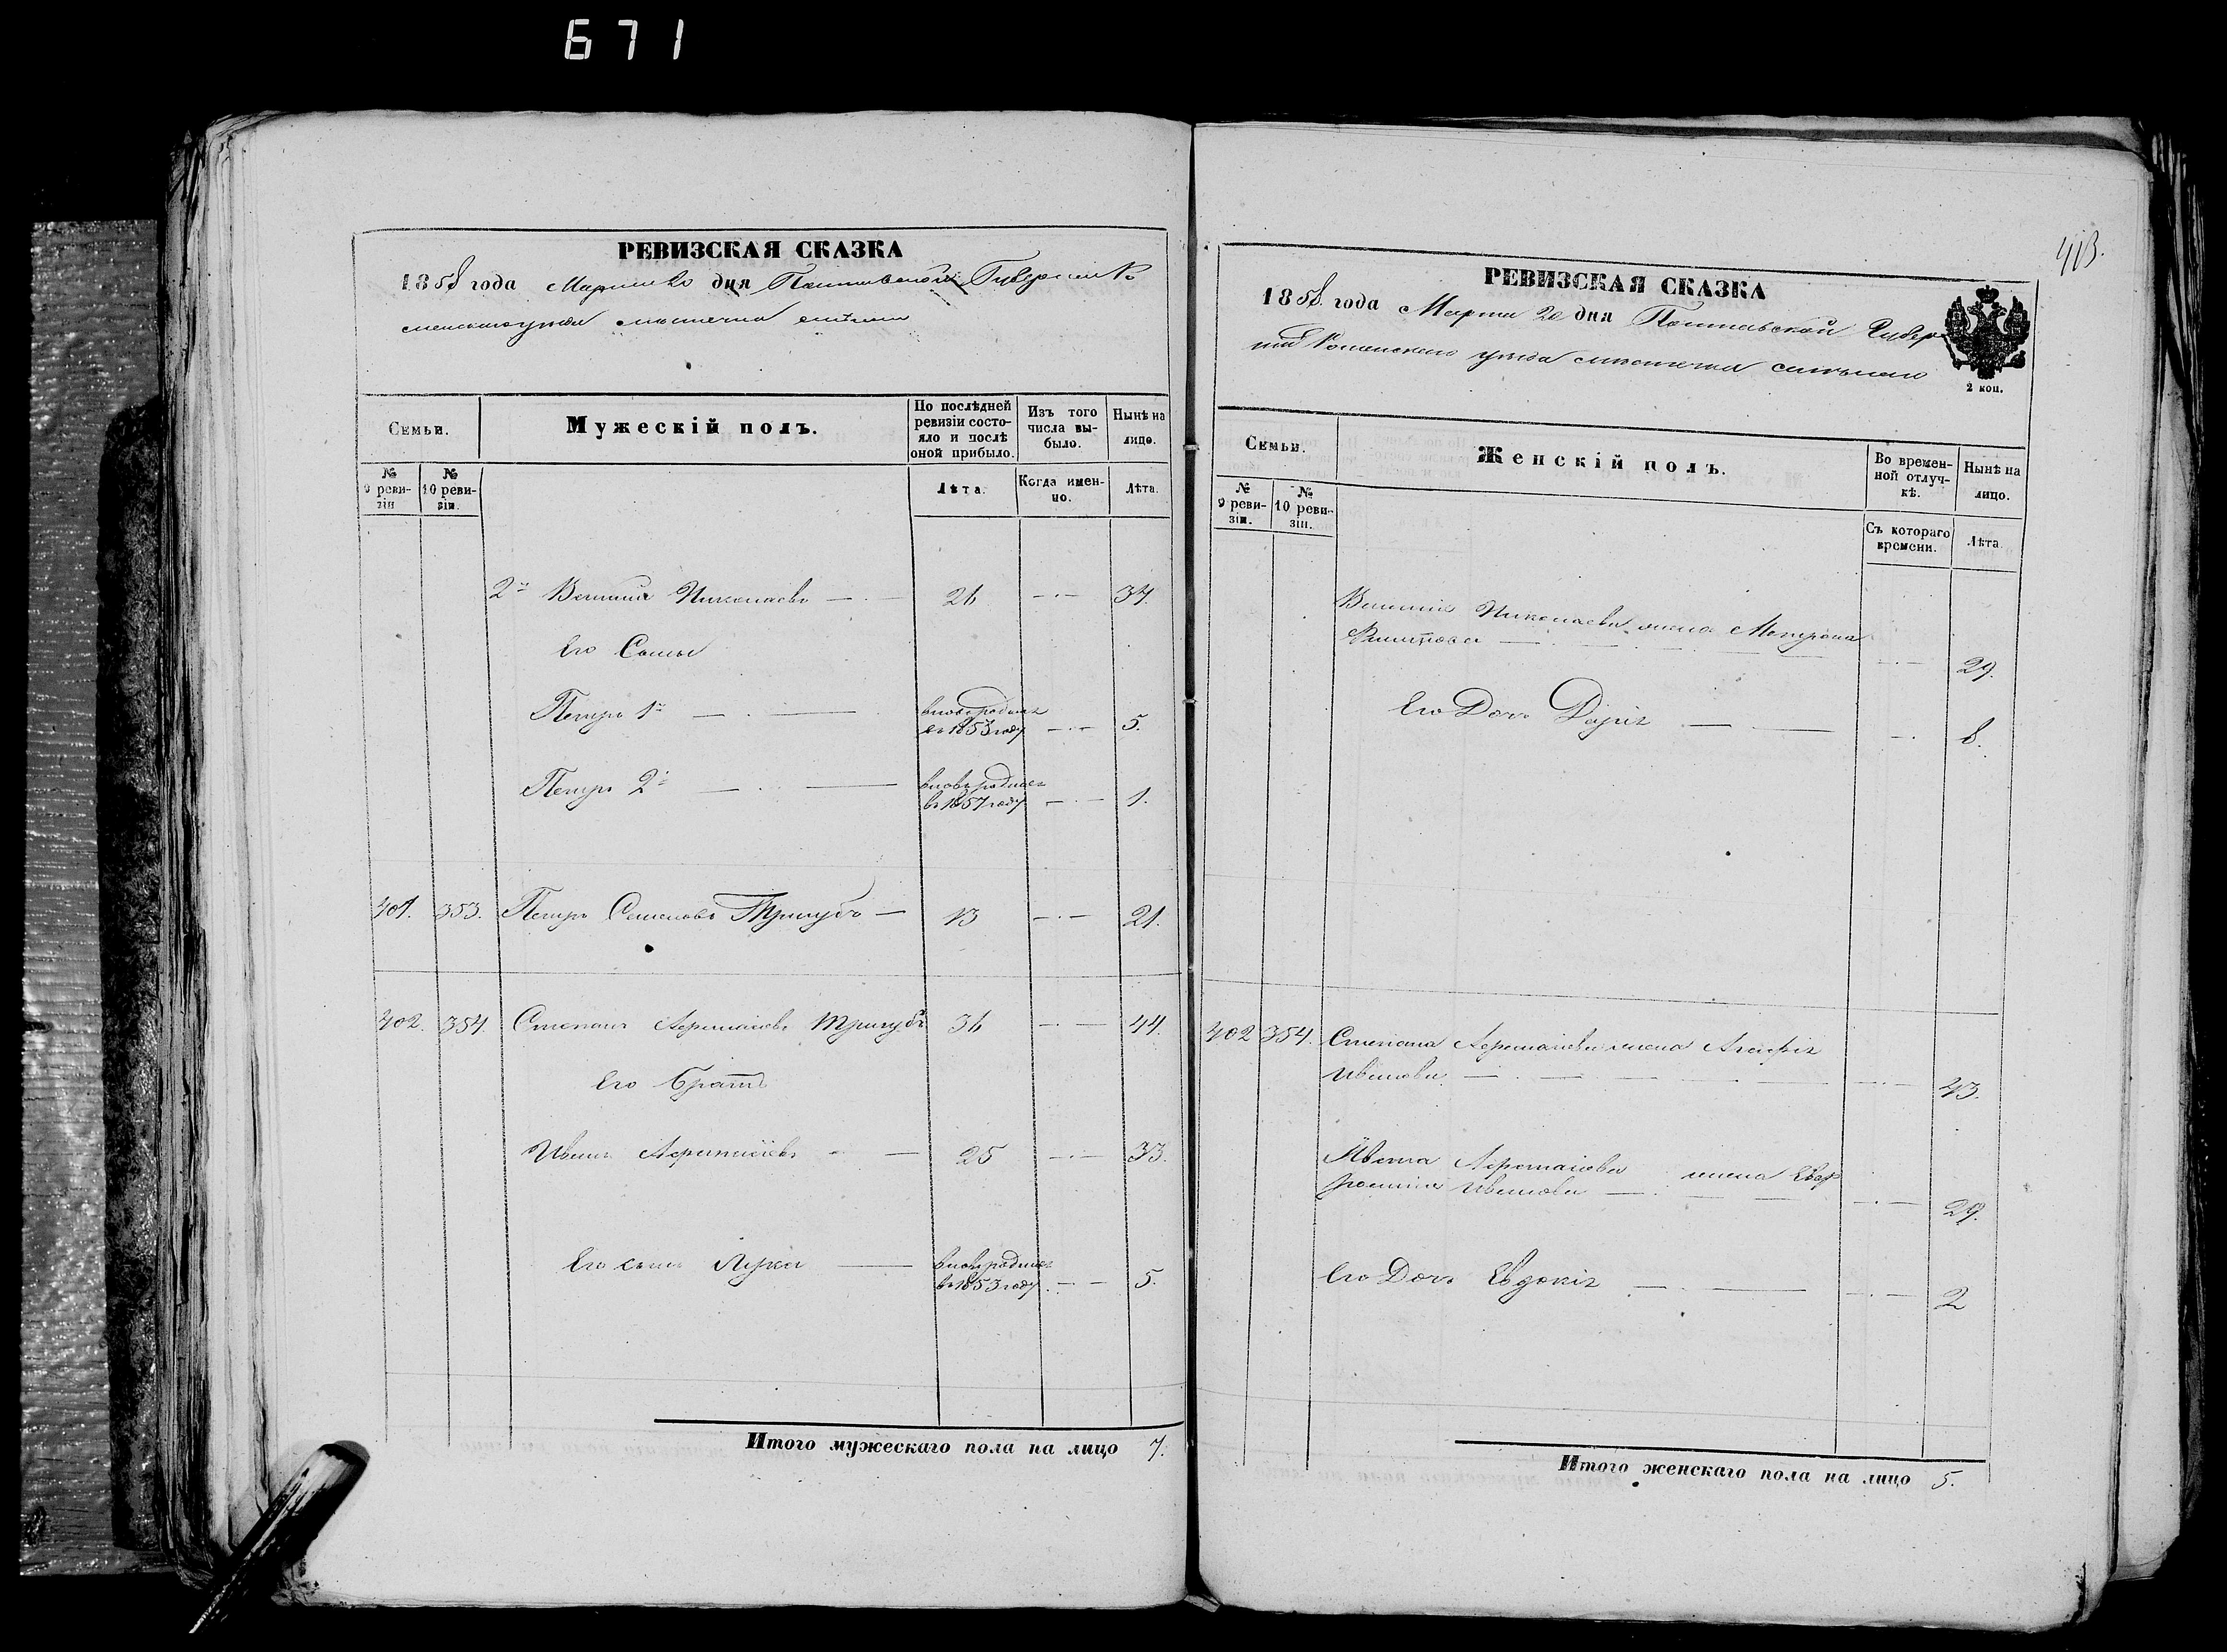 671
РЕВИЗСКАЯ СКАЗКА
1858 года Марта 20 дня Полтавской Губерніи Ро
менскаго уезда местечка
Семьи.
Мужескій полъ.
По послѣдней ревизіи состояло и послѣ оной прибыло.
Изъ того числа выбыло.
Нынѣ на лицо.
№ 9 ревизіи
№ 10 ревизіи.
Лѣта.
Когда именно.
Лѣта.
2й Василій Николаевъ — · — 26 — · — 34.
Его Сыны
Петръ 1й — · — вновь родился
въ 1853 году — · — 5.
Петръ 2й — · — вновь родился
въ 1857 году — · — 1.
401. 353. Петръ Семеновъ Тригубъ — 13 — · — 21.
402. 354. Степанъ Тригубъ 36 — · — 44.
Его Братъ
Иванъ — 25 — · — 33.
Его сынъ Лука — вновь родился
въ 1853 году — · — 5.
Итого мужескаго пола на лицо 7.
413.
РЕВИЗСКАЯ СКАЗКА
1858 года Марта 20 дня Полтавской Губер
ніи Роменскаго уезда местечка
2 коп.
Семьи.
Женскій полъ.
Во временной отлучкѣ.
Нынѣ на лицо.
№ 9 ревизіи.
№ 10 ревизіи.
Съ котораго времени.
Лѣта.
Василія Николаева жена Мотрона
— · — 29.
Его Дочь Дарія — · — 8.
402 354. Степана жена Агафія
Иванова — · — 43.
Ивана жена Евф
росинія Иванова — · — 29.
Его Дочь Евдокія — · — 2
Итого женскаго пола на лицо 5.